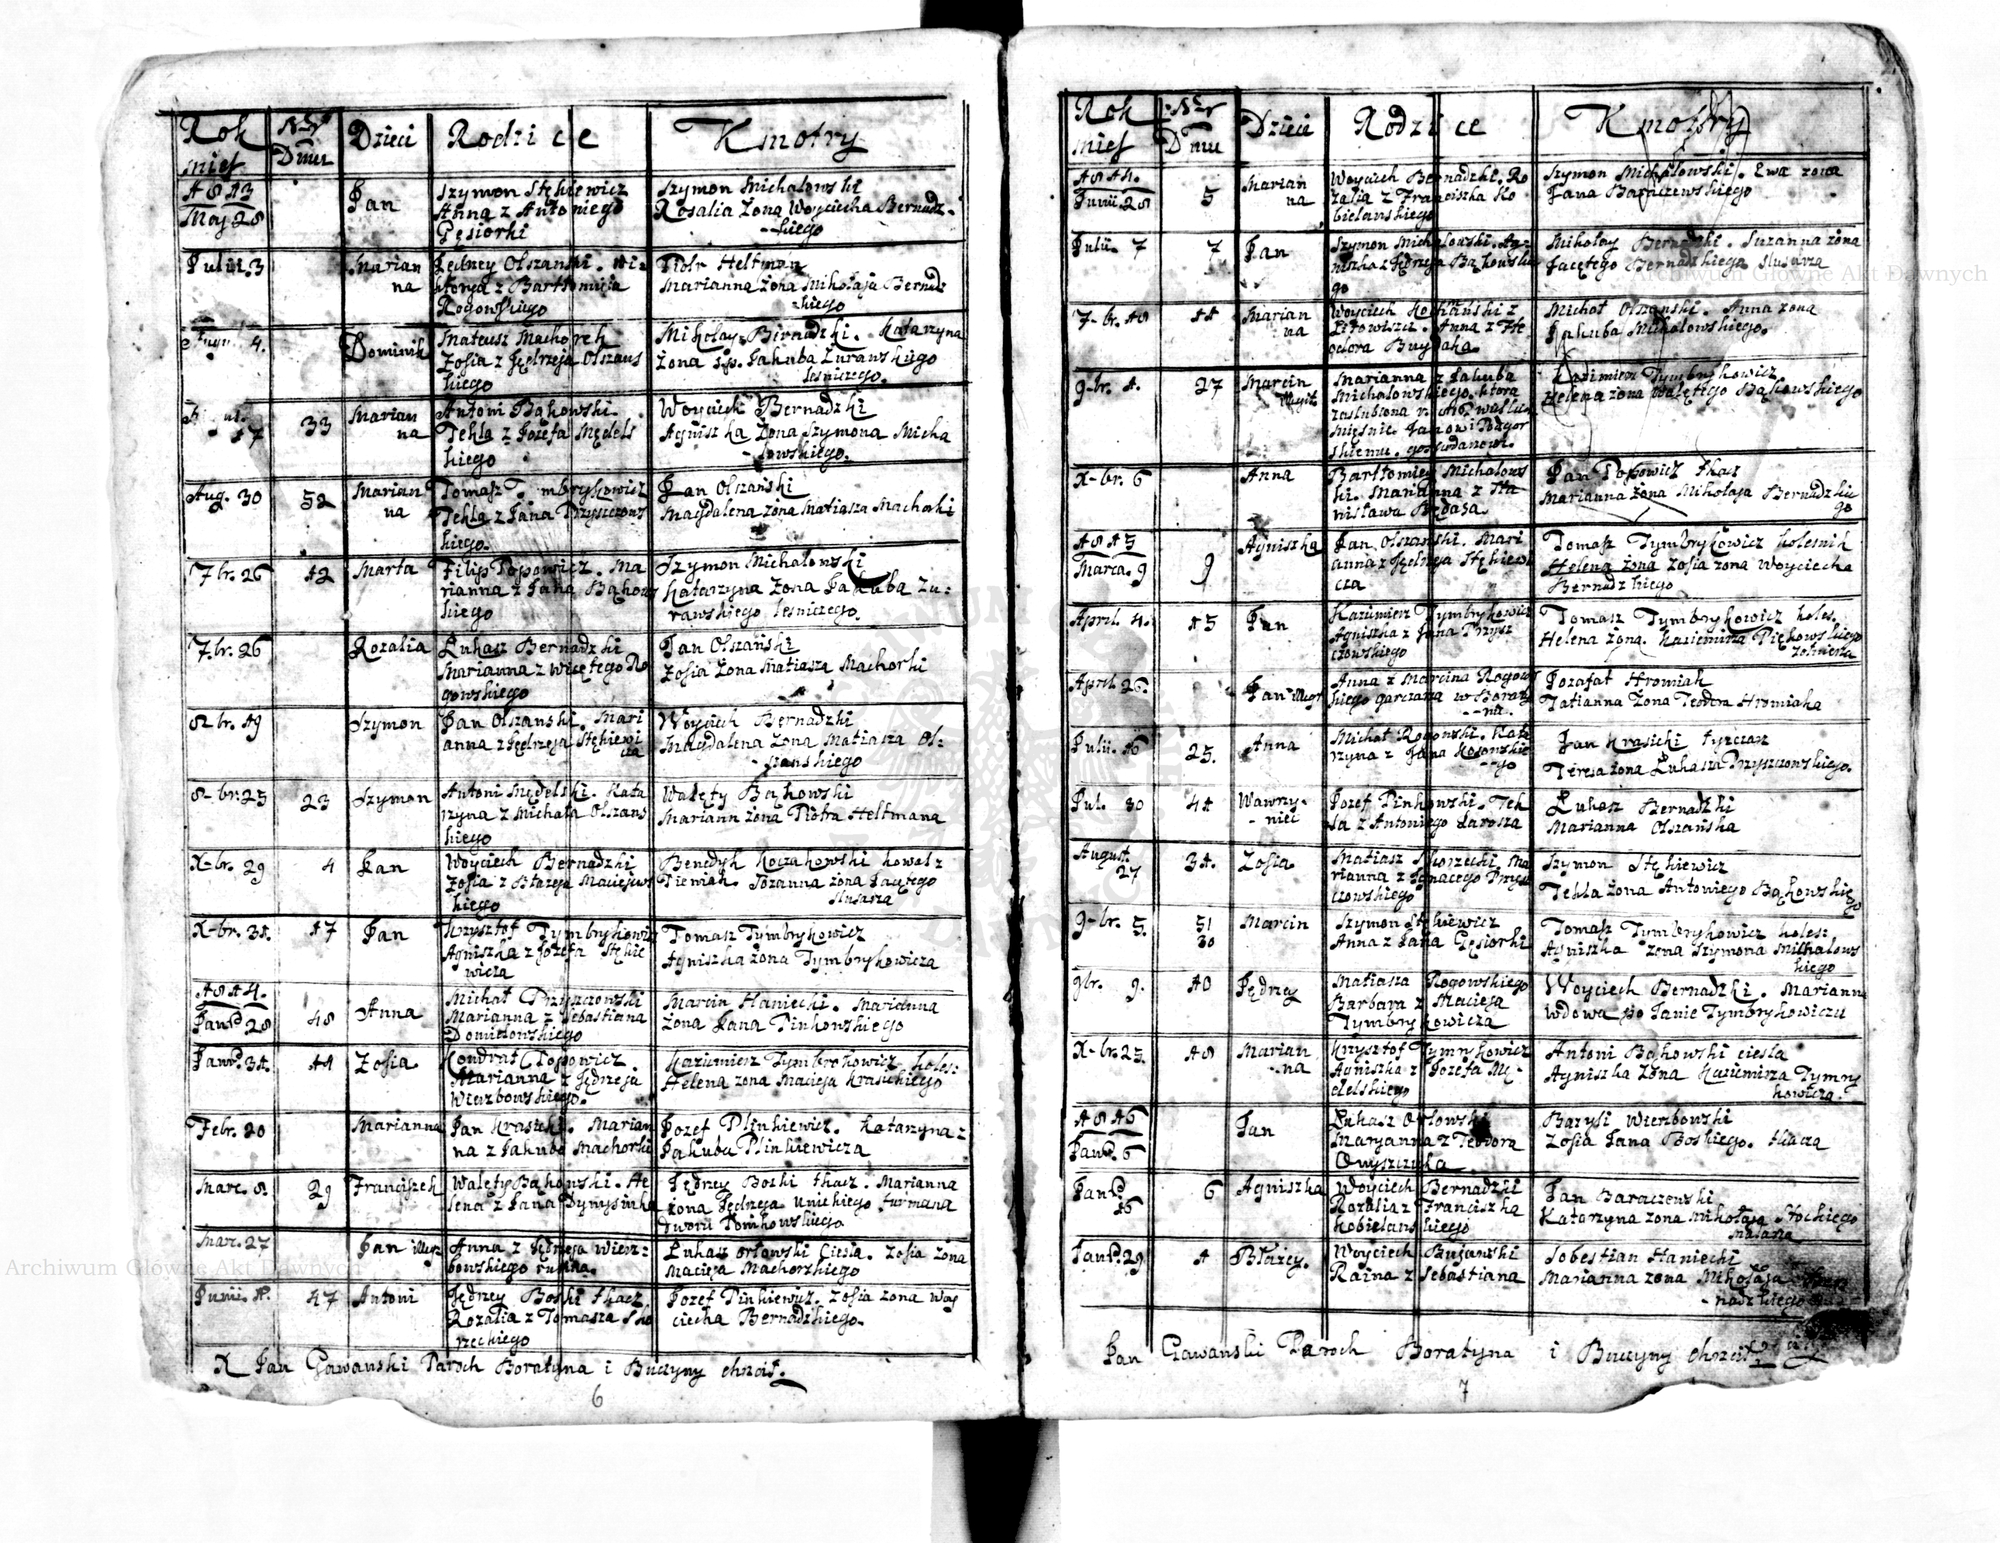 Rok
mies
Nr
Dmu
Dzieci
Rodzice
Kmotry
1813
Maj 28
Jan
Szymon Stękiewicz
Anna z Antoniego
Gęsiorki
Szymon Michalowski
Rosalia Żona Woyciecha Bernadz-
kiego
Julii 3
Marian
na
Jędrzey Olszanski. Wi-
ktorya z Bartłomieja
Rogowskiego
Piotr Heltman
Marianna żona Mikołaja Bernadz-
kiego
4.
Dominik
Mateusz Machorek
Zofia z Jędrzeja Olszans
kiego
Mikołay Birnadzki. Katarzyna
żona śp. Jakuba Zurawskiego
lesniczego.
17
33
Marian
na
Antoni Bąkowski
Tekla z Jozefa Mędels
kiego
Woyciech Bernadzki
Agniszka Żona Szymona Micha
lowskiego.
Aug. 30
52
Marian
na
Tomasz Tymbrykowicz
Tekla z Jana Przyszczows
kiego.
Jan Olszański
Magdalena żona Matiasza Machorki
7br. 26
12
Marta
Filip Popowicz. Ma
rianna z Jana Bąkows
kiego
Szymon Michalowski
Katarzyna żona Jakuba Zu-
rawskiego lesniczego.
7.br. 26
Rozalia
Łukasz Bernadzki
Marianna z Wicętego Ro
gowskiego
Jan Olszański
Zofia Żona Matiasza Machorki
8br. 19
Szymon
Jan Olszanski. Mari
anna z Jędrzeja Stękiewi
cza
Woyciech Bernadzki
Magdalena żona Matiasza Ol-
szanskiego
8-br. 25
23
Szymon
Antoni Mędelski. Kata
rzyna z Michała Olszans
kiego
Walęty Bąkowski
Mariann żona Piotra Heltmana
X-br. 29
4
Jan
Woyciech Bernadzki
Zofia z Błażeja Maciejows
kiego
Benedyk Koczakowski kowal z
Pieniak. Zozanna żona Jacętego
slusarza
X-br. 31.
17
Jan
Krzysztof Tymbrykowicz
Agniszka z Jozefa Stękie
wicza
Tomasz Tymbrykowicz
Agniszka żona Tymbrykowicza
1814.
Januar. 28
48
Anna
Michał Przyszczowski
Marianna z Sebastiana
Domietowskiego
Marcin Haniecki. Marianna
żona Jana Pinkowskiego
Januar. 31.
11
Zofia
Kondrat Popowicz.
Marianna z Jędrzeja
Wierzbowskiego.
Kazimierz Tymbrokowicz koles:
Helena zona Macieja Krasickiego
Febr. 20
Marianna
Jan Krasicki. Marian
na z Jakuba Machorki
Jozef Plinkiewicz. Katarzyna z
Jakuba Plinkiewicza
Marc. 8.
29
Franciszek
Walęty Bąkowski. He
lena z Jana Dymysinka
Jędrzey Boski tkacz. Marianna
żona Jędrzeja Unickiego furmana
dworu Pomkowskiego
Marc. 27
Jan illegt
Anna z Jędrzeja Wierz-
bowskiego
Łukasz Orłowski Ciesla. Zofia żona
Macieja Machorskiego
Junii. 18.
47
Antoni
Jędrzey Boski tkacz
Rozalia z Tomasza Sko
rzeckiego
Jozef Pinkiewicz. Zofia zona Woy
ciecha Bernadzkiego.
X Jan Gawanski Paroch Boratyna i Buczyny chrzcił.
6
Rok
mies
Nr
Dmu
Dzieci
Rodzice
Kmotry
1814.
Junii 28
5
Marian
na
Woyciech Bernadzki. Ro
zalia z Franciszka Ko
bielanskiego
Szymon Michalowski. Ewa zona
Jana Barnczewskiego
Julii. 7
7
Jan
Szymon Michalowski. Ag-
niszka z Jędrzeja Bąkowskie
go
Mikołay Bernadzki. Suzanna żona
Jacętego Bernadzkiego slusarza
7-br. 18
11
Marian
na
Woyciech Kochański z
Litowiszcz. Anna z Te
odora Buydaka.
Michał Olszanski. Anna żona
Jakuba Michalowskiego.
9-br. 1.
27
Marcin
illegit
Marianna z Jakuba
Michalowskiego, ktora
zaslubiona
Kazimierz Tymbrykowicz
Helena zona Walętego Bąkowskiego
X-br. 6
Anna
Bartłomiey Michalows
ki. Marianna z Sta
nisława Bębasa.
Jan Popowicz tkacz
Marianna żona Mikołaja Bernadzkie
go
1815
Marca. 9
9
Agniszka
Jan Olszanski. Mari
anna z Jędrzeja Stękiewi
cza
Tomasz Tymbrykowicz kolesnik
Helena żona Zofia żona Woyciecha
Bernadzkiego
April 4.
15
Jan
Kazimierz Tymbrykowicz
Agniszka z Jana Przysz
czowskiego
Tomasz Tymbrykowicz koles.
Helena żona Kazimirza Piękowskiego
żołnierza
April 26.
Jan illegt
Anna z Marcina Rogows
kiego garczarza w Boraty
nie.
Jozafat Hromiak
Tatianna Żona Teodora Hromiaka
Julii. 16
25.
Anna
Michał Rogowski. Kata
rzyna z Jana Kosowskie
go
Jan Krasicki tyrczar
Teresa żona Łukasza Przyszczowskiego.
Jul. 30
41
Wawrzy-
niec
Jozef Pinkowski. Tek
la z Antoniego Łarosza
Łukasz Bernadzki
Marianna Olszańska
August.
27
31.
Zofia.
Matiasz Skorzecki. Ma
rianna z Ignacego Przysz
czowskiego
Szymon Stękiewicz
Tekla żona Antoniego Bąkowskiego
9-br. 5.
51
30
Marcin
Szymon Stękiewicz
Anna z Jana Gęsiorki
Tomasz Tymbrykowicz koles:
Agniszka żona Szymona Michalows
kiego
9br. 9.
10
Jędrzey
Matiasza Rogowskiego
Barbara z Macieja
Tymbrykowicza
Woyciech Bernadzki. Marianna
wdowa po Janie Tymbrykowiczu
X-br. 25
18
Marian
-na
Krzysztof Tymrykowicz
Agniszka z Jozefa Mę-
delskiego
Antoni Bąkowski ciesla
Agniszka żona Kazimirza Tymry
kowicza.
1816
Januar. 6
Jan
Łukasz Orłowski
Maryanna z Teodora
Owyszczuka
Bazyli Wierzbowski
Zofia Jana Boskiego. tkacza
Januar.
16
6
Agniszka
Woyciech Bernadzki
Rozalia z Franciszka
Kobielanskiego
Jan Baraczewski
Katarzyna żona Mikołaja Stockiego
malarza
Januar. 29
1
Błażey.
Woyciech Buzanski
Raina z Sebastiana
Sobestian Haniecki
Marianna żona Mikołaja Ber
nadzkiego
Jan Gawanski Paroch Boratyna i Buczyny chrzcił
7
Archiwum Główne Akt Dawnych
Archiwum Główne Akt Dawnych